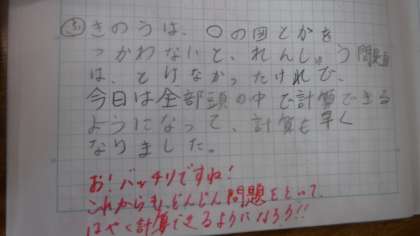 ふ きのうは、○の図とかを
つかわないと、れんしゅう問題
は、とけなかったけれど、
今日は全部頭の中で計算できる
ようになって、計算も早く
なりました。
お!バッチリですね!
これからも、どんどん問題をといて、
はやく計算できるようになろう!!